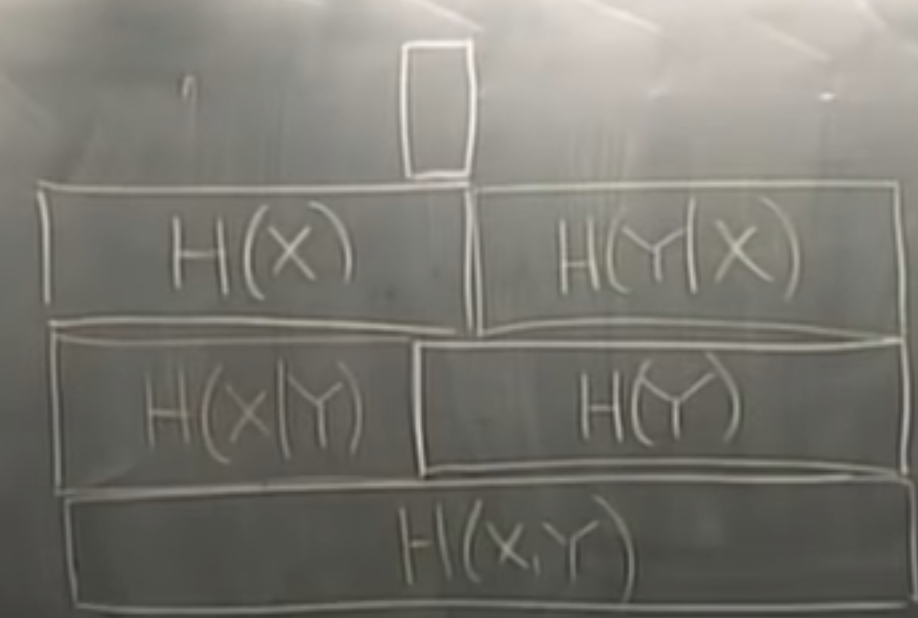 H(X) H(Y|X)
H(X|Y) H(Y)
H(X,Y)